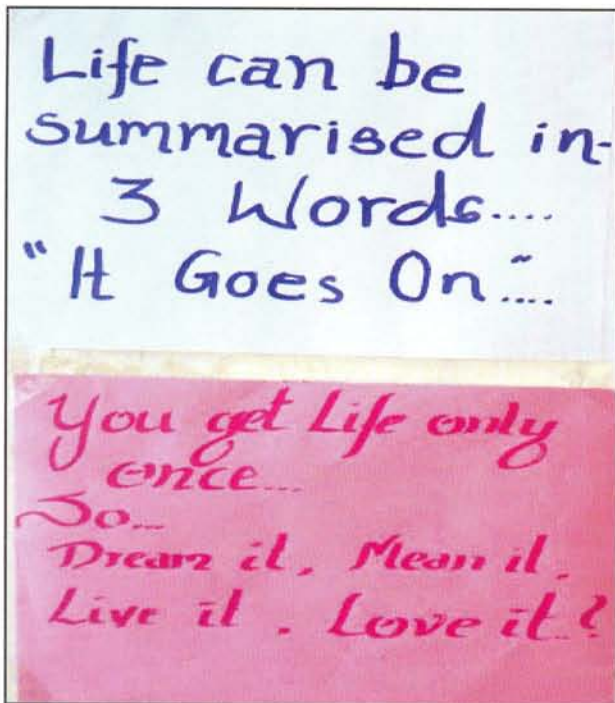 Life can be
summarised in-
3 Words....
"It Goes On"....
You get Life only
once...
So...
Dream it, Mean it,
Live it, Love it..?